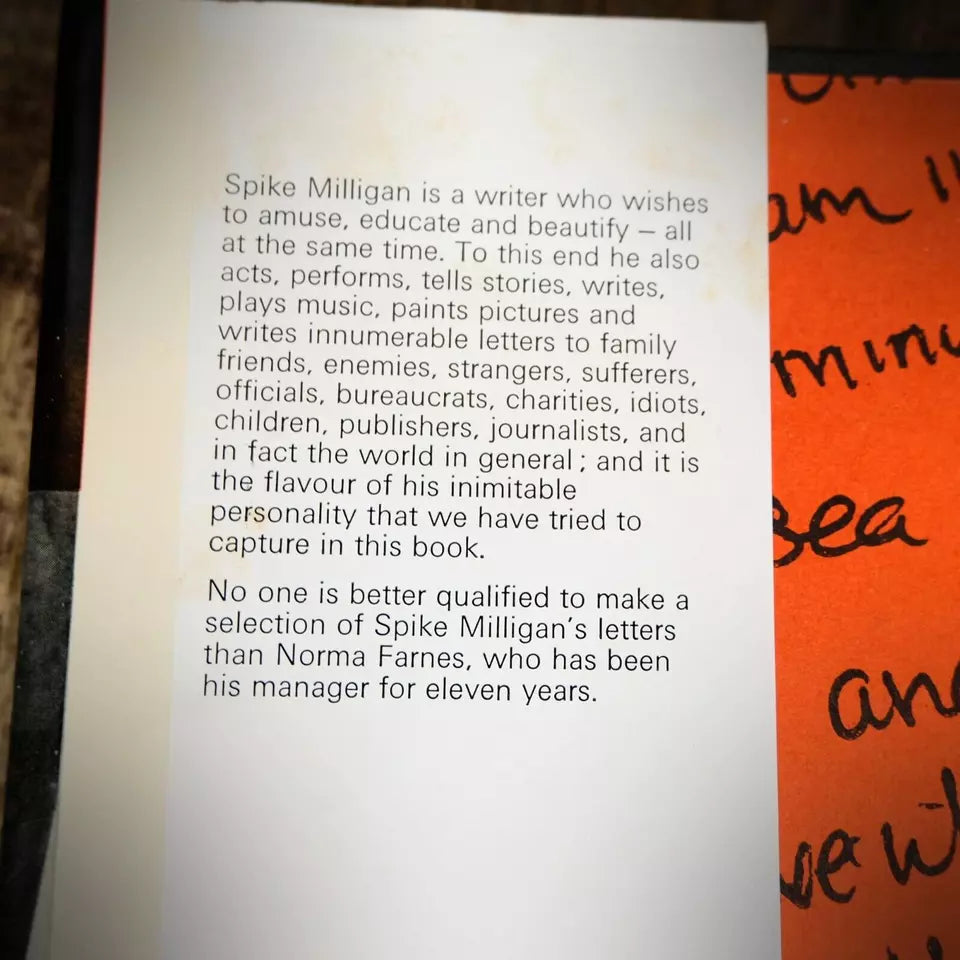 Spike Milligan is a writer who wishes
to amuse, educate and beautify – all
at the same time. To this end he also
acts, performs, tells stories, writes,
plays music, paints pictures and
writes innumerable letters to family
friends, enemies, strangers, sufferers,
officials, bureaucrats, charities, idiots,
children, publishers, journalists, and
in fact the world in general ; and it is
the flavour of his inimitable
personality that we have tried to
capture in this book.
No one is better qualified to make a
selection of Spike Milligan's letters
than Norma Farnes, who has been
his manager for eleven years.
am
sea